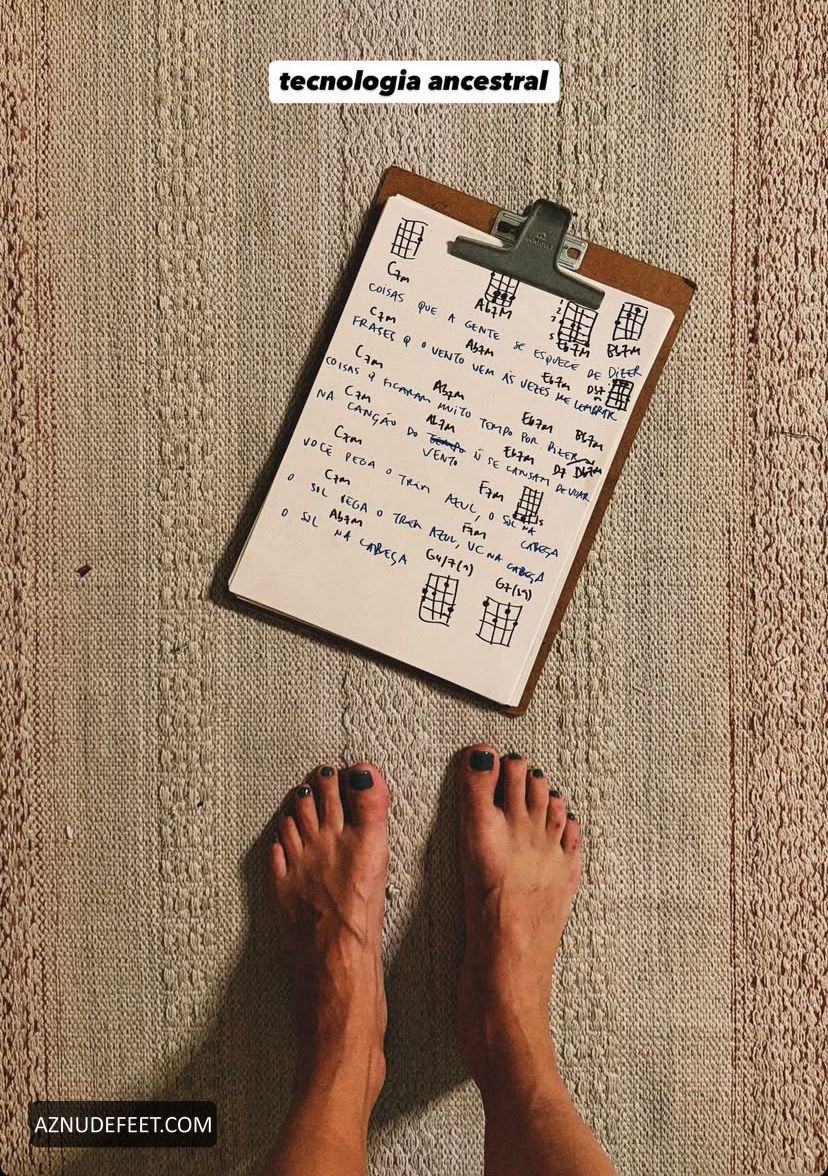 tecnologia ancestral
C7M
Ab7M
Eb7M Bb7M
COISAS QUE A GENTE SE ESQUECE DE DIZER
C7M Ab7M Eb7M D7
FRASES Q O VENTO VEM ÀS VEZES ME LEMBRAR
C7M Ab7M Eb7M Bb7M
COISAS Q FICARAM MUITO TEMPO POR DIZER
C7M Ab7M Eb7M D7 Db7M
NA CANÇÃO DO VENTO Ñ SE CANSAM DE VOAR
C7M F7M
VOCÊ PEGA O TREM AZUL, O SOL NA CABEÇA
C7M F7M
O SOL PEGA O TREM AZUL, VC NA CABEÇA
Ab7M G4/7(9) G7(b9)
O SOL NA CABEÇA
AZNUDEFEET.COM